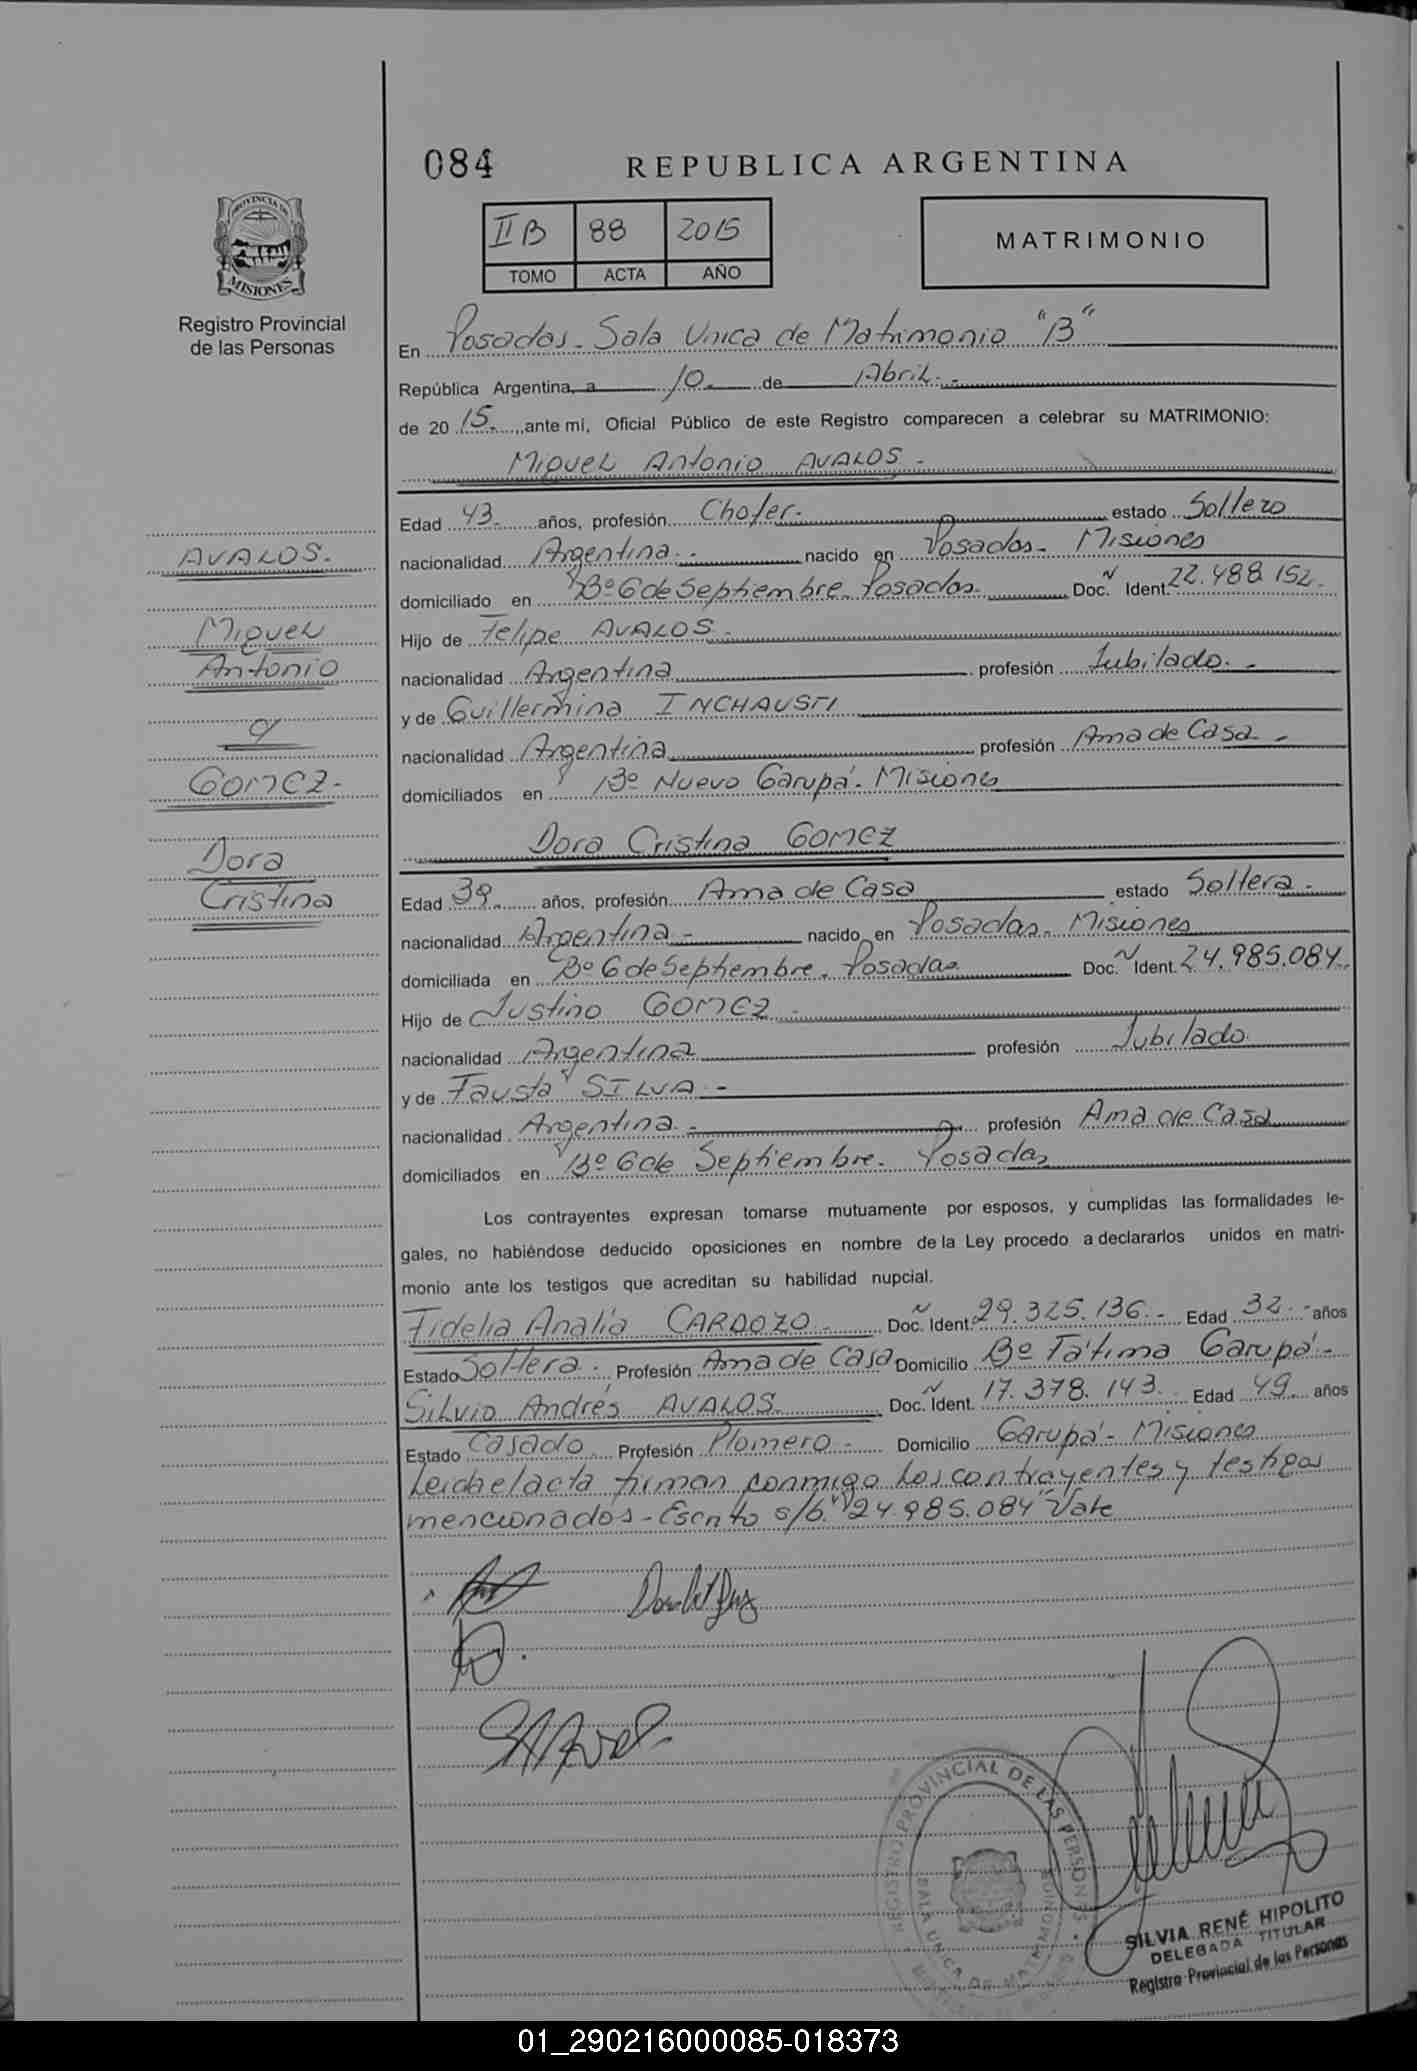 084 REPUBLICA ARGENTINA
II B 88 2015
TOMO ACTA AÑO
MATRIMONIO
PROVINCIA DE
MISIONES
Registro Provincial
de las Personas
En Posadas - Sala Unica de Matrimonio "B"
República Argentina, a 10 de Abril.-
de 2015, ante mi, Oficial Público de este Registro comparecen a celebrar su MATRIMONIO:
Miguel Antonio AVALOS -
AVALOS.
Miguel
Antonio
y
GOMEZ-
Dora
Cristina
Edad 43 años, profesión Chofer. estado Soltero
nacionalidad Argentina.- nacido en Posadas - Misiones
domiciliado en Bº 6 de Septiembre. Posadas. Doc. N Ident. 22.488.152.
Hijo de Felipe AVALOS -
nacionalidad Argentina profesión Jubilado. -
y de Guillermina INCHAUSTI
nacionalidad Argentina profesión Ama de Casa -
domiciliados en Bº Nuevo Garupá - Misiones
Dora Cristina GOMEZ
Edad 39 años, profesión Ama de Casa estado Soltera -
nacionalidad Argentina - nacido en Posadas - Misiones
domiciliada en Bº 6 de Septiembre. Posadas Doc. N Ident. 24.985.084.
Hijo de Justino GOMEZ -
nacionalidad Argentina profesión Jubilado.
y de Fausta SILVA -
nacionalidad Argentina - profesión Ama de Casa
domiciliados en Bº 6 de Septiembre. Posadas
Los contrayentes expresan tomarse mutuamente por esposos, y cumplidas las formalidades le-
gales, no habiéndose deducido oposiciones en nombre de la Ley procedo a declararlos unidos en matri-
monio ante los testigos que acreditan su habilidad nupcial.
Fidelia Analía CARDOZO - Doc. N Ident. 29.325.136.- Edad 32.- años
Estado Soltera. Profesión Ama de Casa Domicilio Bº Fátima Garupá -
Silvio Andrés AVALOS Doc. N Ident. 17.378.143. Edad 49 años
Estado Casado Profesión Plomero - Domicilio Garupá - Misiones
Leida el acta firman conmigo los contrayentes y testigos
mencionados - Escrito s/b. "24.985.084" Vale
REGISTRO PROVINCIAL DE LAS PERSONAS
SALA UNICA DE MATRIMONIO
SILVIA RENÉ HIPOLITO
DELEGADA TITULAR
Registro Provincial de las Personas
01_290216000085-018373